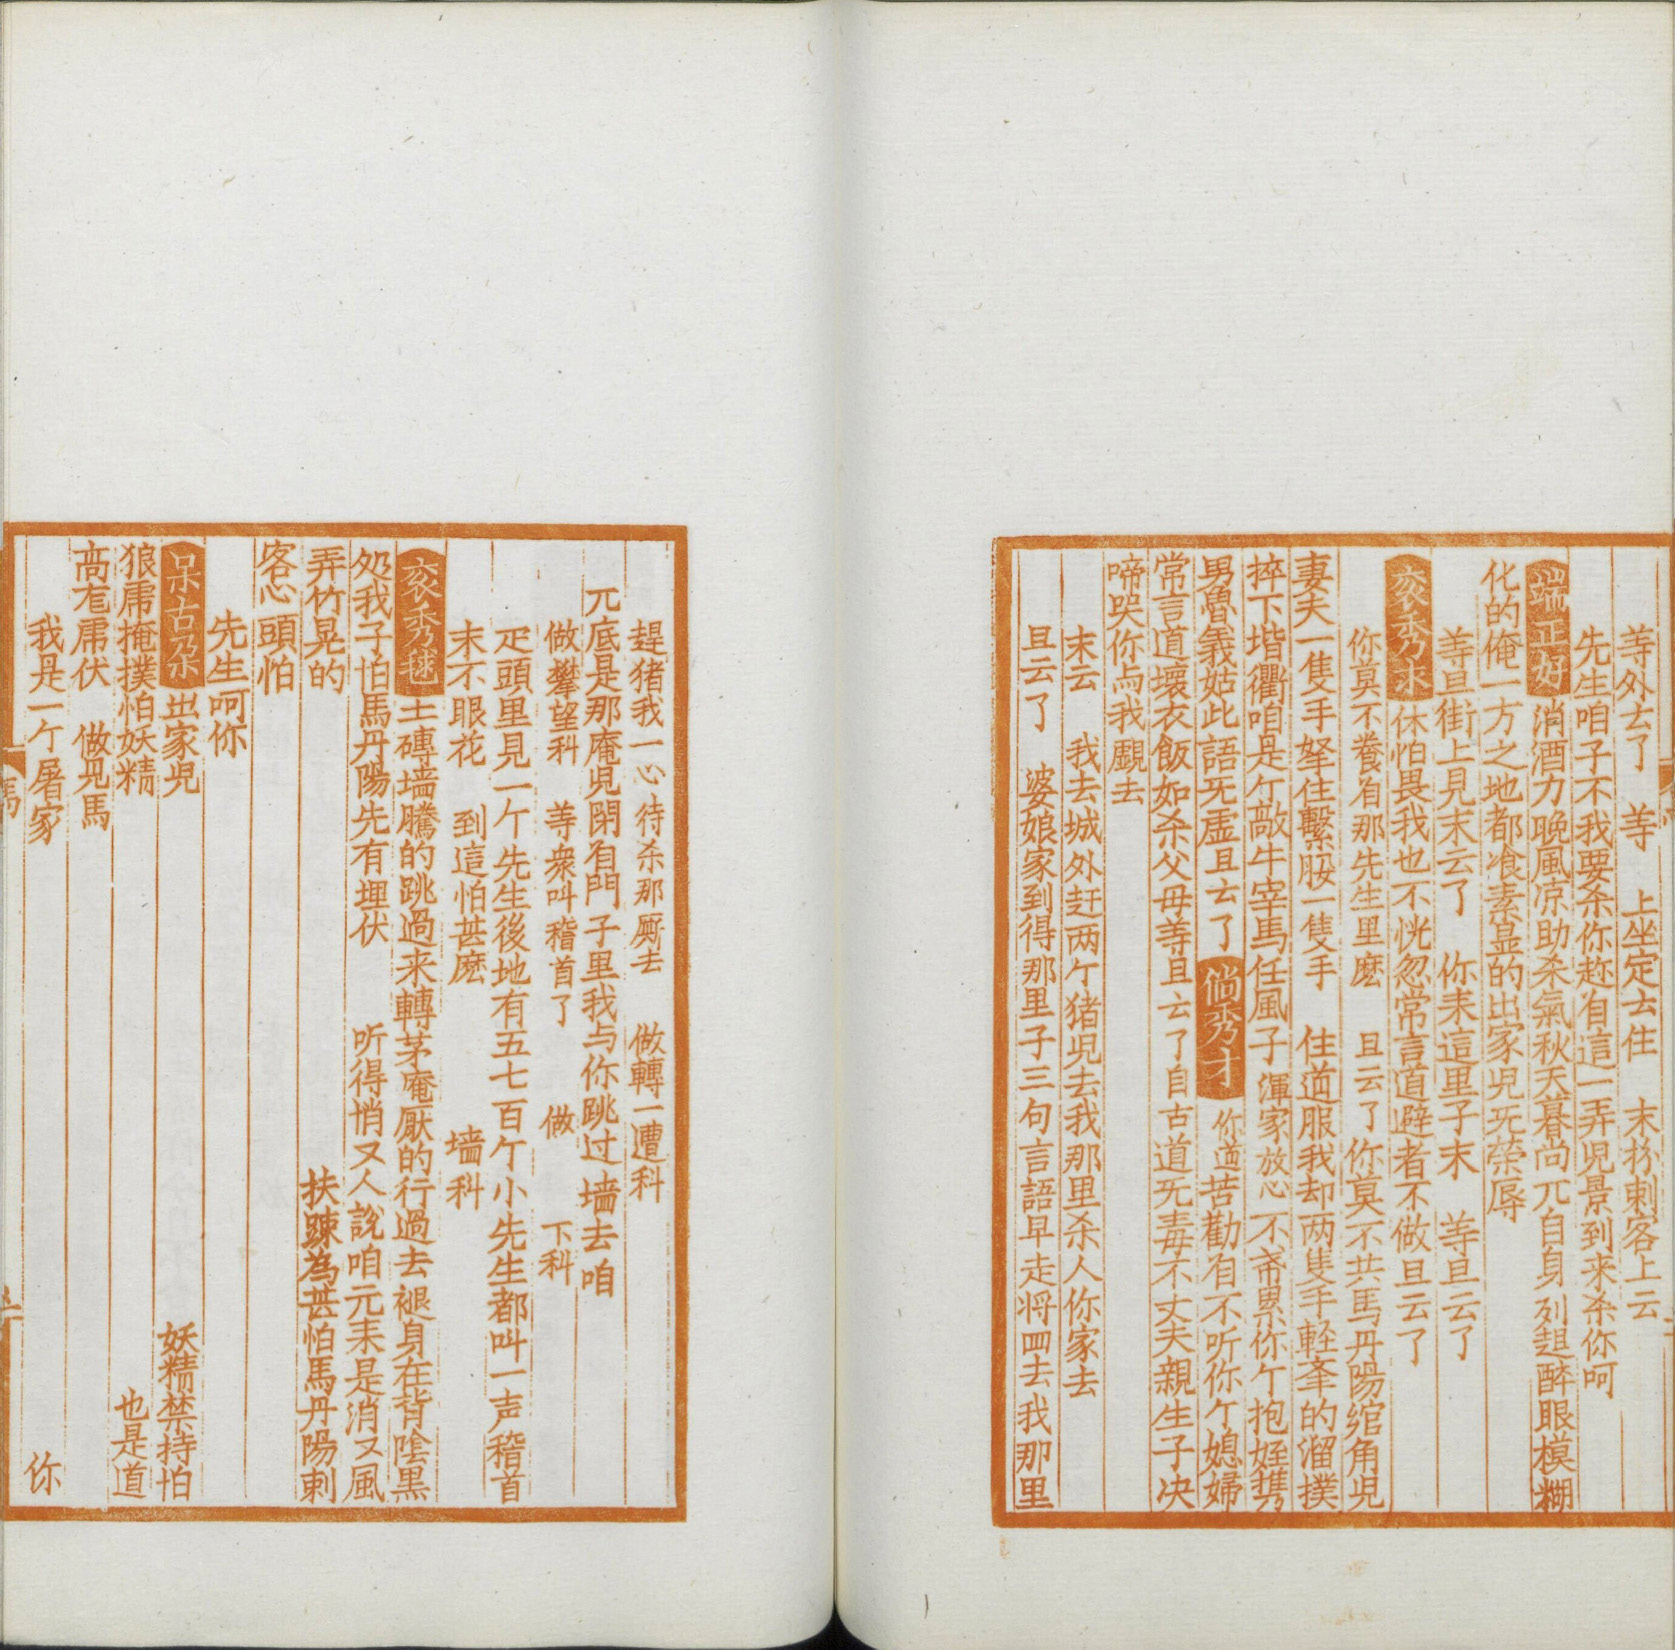 等外去了　等　上坐定去住　末扮刺客上云
先生咱子不我要杀你趂有這一弄児景到来杀你呵
端正好　消酒力晚風凉助杀氣秋天暮尚兀自身列趄醉眼模糊
化的俺一方之地都喰素显的出家児无荣辱
等旦街上見末云了　你来這里子末　等旦云了
衮秀求　休怕畏我也不恍忽常言道避者不做旦云了
你莫不養有那先生里麽　旦云了你莫不共馬丹陽绾角児
妻夫一隻手拏住繫腰一隻手　住道服我却两隻手軽夆的溜撲
捽下堦衢咱是个敲牛宰馬任風子　渾家放心不斋累你个抱姪攜
男魯義姑此語无虚旦云了　倘秀才　你道苦勸有不听你个媳婦
常言道壞衣飯如杀父毋等旦云了自古道无毒不丈夫親生子决
啼哭你向我覷去
末云　我去城外赶两个猪児去我那里杀人你家去
旦云了　婆娘家到得那里子三句言語早走将囬去我那里
趕猪我一心待杀那厮去　做轉一遭科
兀底是那庵児閉有門子里我与你跳过墙去咱
做攀望科　等衆叫稽首了　做　下科
疋頭里見一个先生後地有五七百个小先生都叫一声稽首
末不眼花　到這怕甚麽　墙科
衮秀毬　土磚墙騰的跳過来轉茅庵厭的行過去褪身在背陰黑
処我子怕馬丹陽先有埋伏　听得悄又人說咱元来是消又風
弄竹晃的　扶踈為甚怕馬丹陽剌
客心頭怕
先生呵你
呆古朶　出家児　妖精禁持怕
狼虎掩撲怕妖精　也是道
高有虎伏　做見馬
我是一个屠家　你
馬